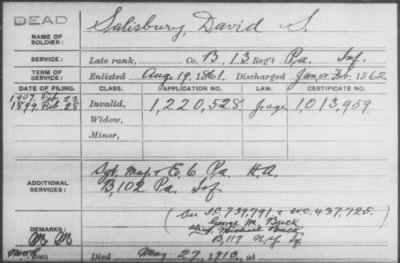 DEAD
NAME OF SOLDIER: Salisbury, David S.
SERVICE: Late rank, Co. B, 13 Reg't Pa. Inf.
TERM OF SERVICE: Enlisted Aug. 19, 1861. Discharged Jan. or Feb. 1862
DATE OF FILING. CLASS. APPLICATION NO. LAW. CERTIFICATE NO.
1907
1899 Feb 28 Invalid, 1,220,528 1,013,959
Widow,
Minor,
ADDITIONAL SERVICES: Sgt. Maj. & E, 6, Pa. H.A.
B, 102 Pa. Inf
(See I.C. 739,791 & W.C. 437,725.)
REMARKS: George M. Buck
alias Michael Buck
M M B, 117 N.Y. Inf.
Died May 27, 1910, at